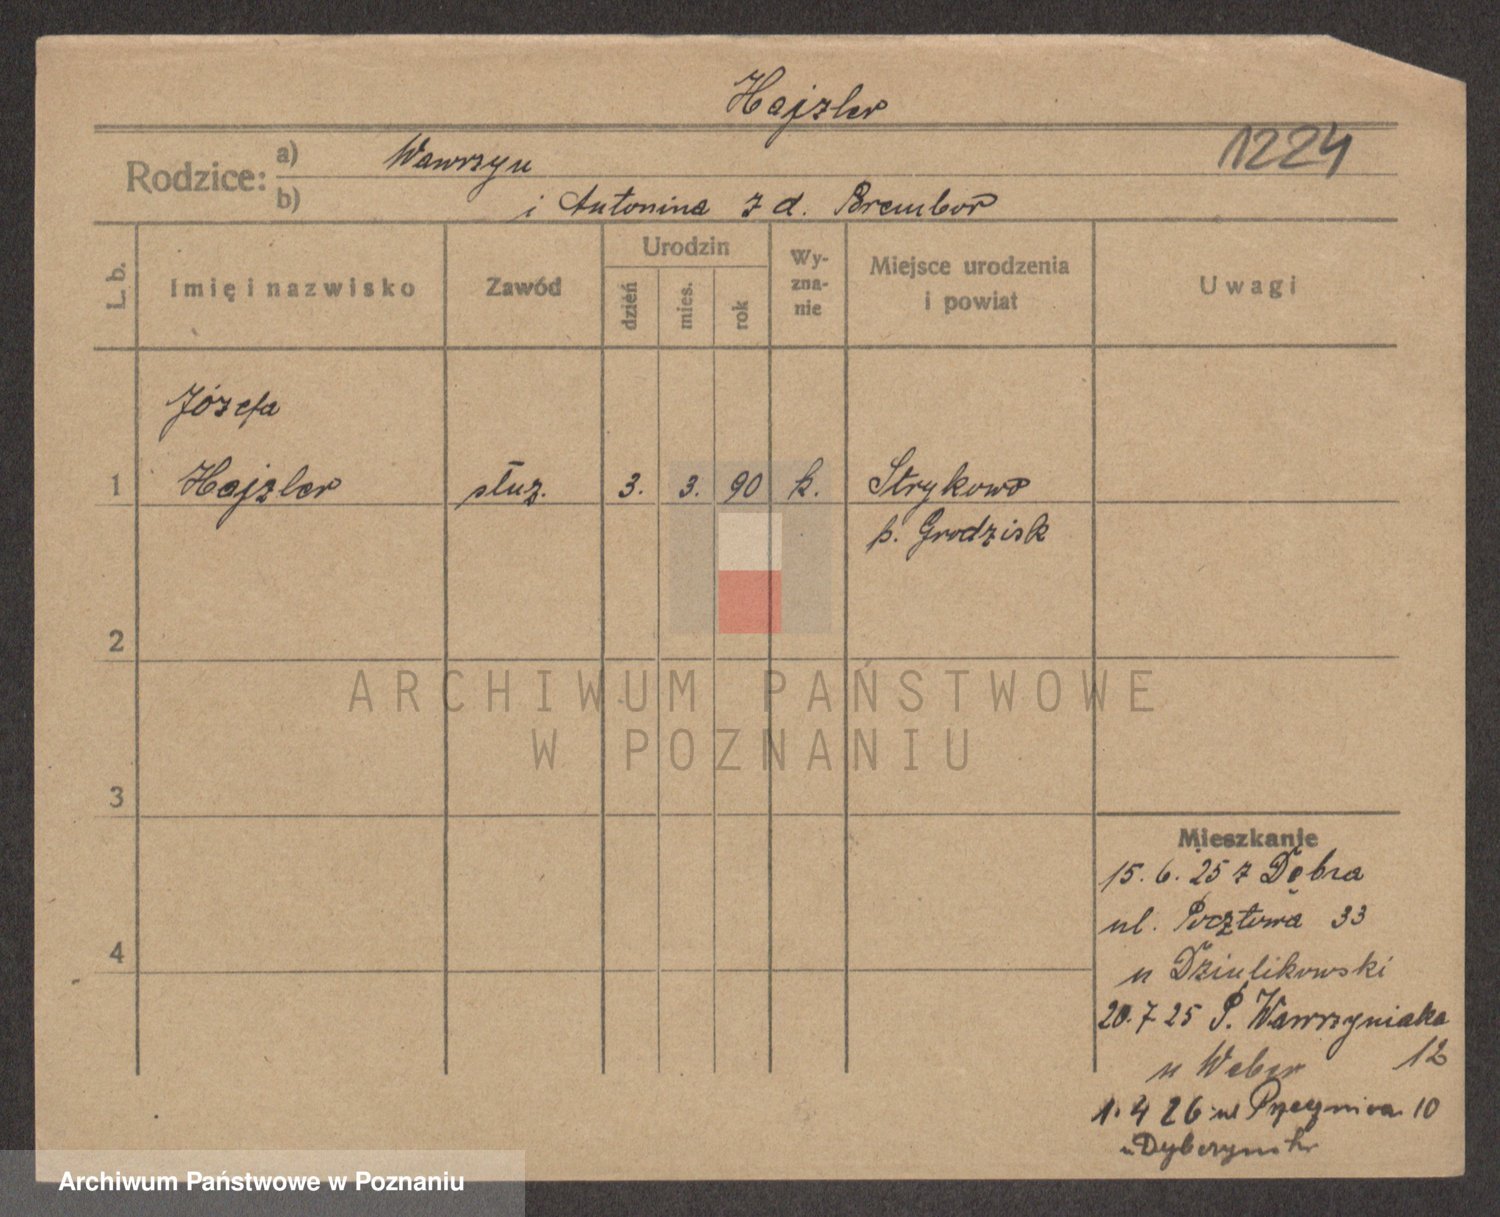 Hajzler
1224
Rodzice:
a) Wawrzyn
b) i Antonina z d. Brembor
L. b.
Imię i nazwisko
Zawód
Urodzin
dzień
mies.
rok
Wy-
zna-
nie
Miejsce urodzenia
i powiat
Uwagi
Józefa
1 Hajzler służ. 3. 3. 90 k. Strykowo
p. Grodzisk
2
3
4
ARCHIWUM PAŃSTWOWE
W POZNANIU
Mieszkanie
15. 6. 25 z Dębra
ul. Pocztowa 33
u Dziulikowski
20. 7 25 P. Wawrzyniaka
12
u Weber
1. 4 26 ul 10
Archiwum Państwowe w Poznaniu